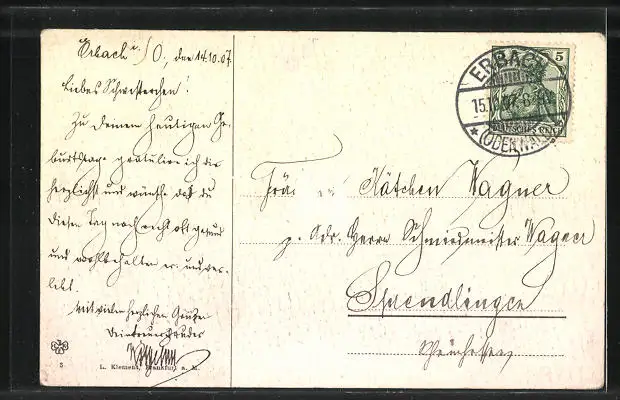 Erbach i/O, den 14.10.07.
Liebes Schwesterchen!
Zu deinem heutigen Ge-
burtstage gratuliere ich dir
herzlichst und wünsche daß du
diesen Tag noch recht oft gesund
und wohlbehalten
Mit vielen herzlichen Grüßen
Dein treuer Bruder
L. Klement, Frankfurt a. M.
5
ERBACH
15.10.07
* (ODENWALD)
5
DEUTSCHES REICH
Frä Kätchen Wagner
p. Adr. Herrn Schmiedmeister Wagner
Sprendlingen
Rheinhessen